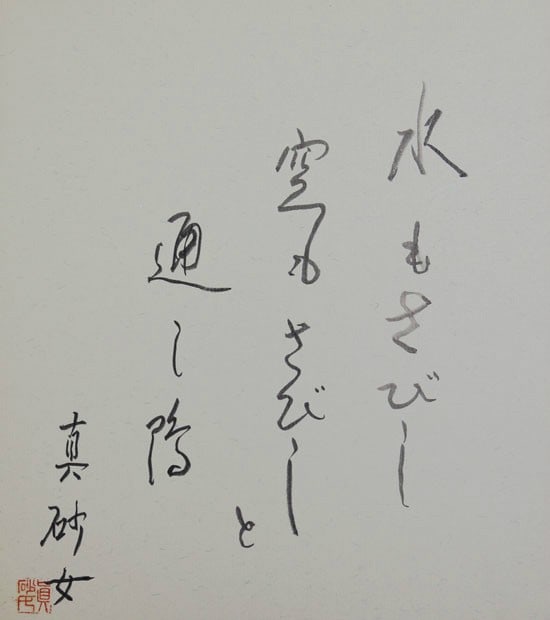 水もさびし
空もさびし
と
通し鴨
真砂女
眞砂女